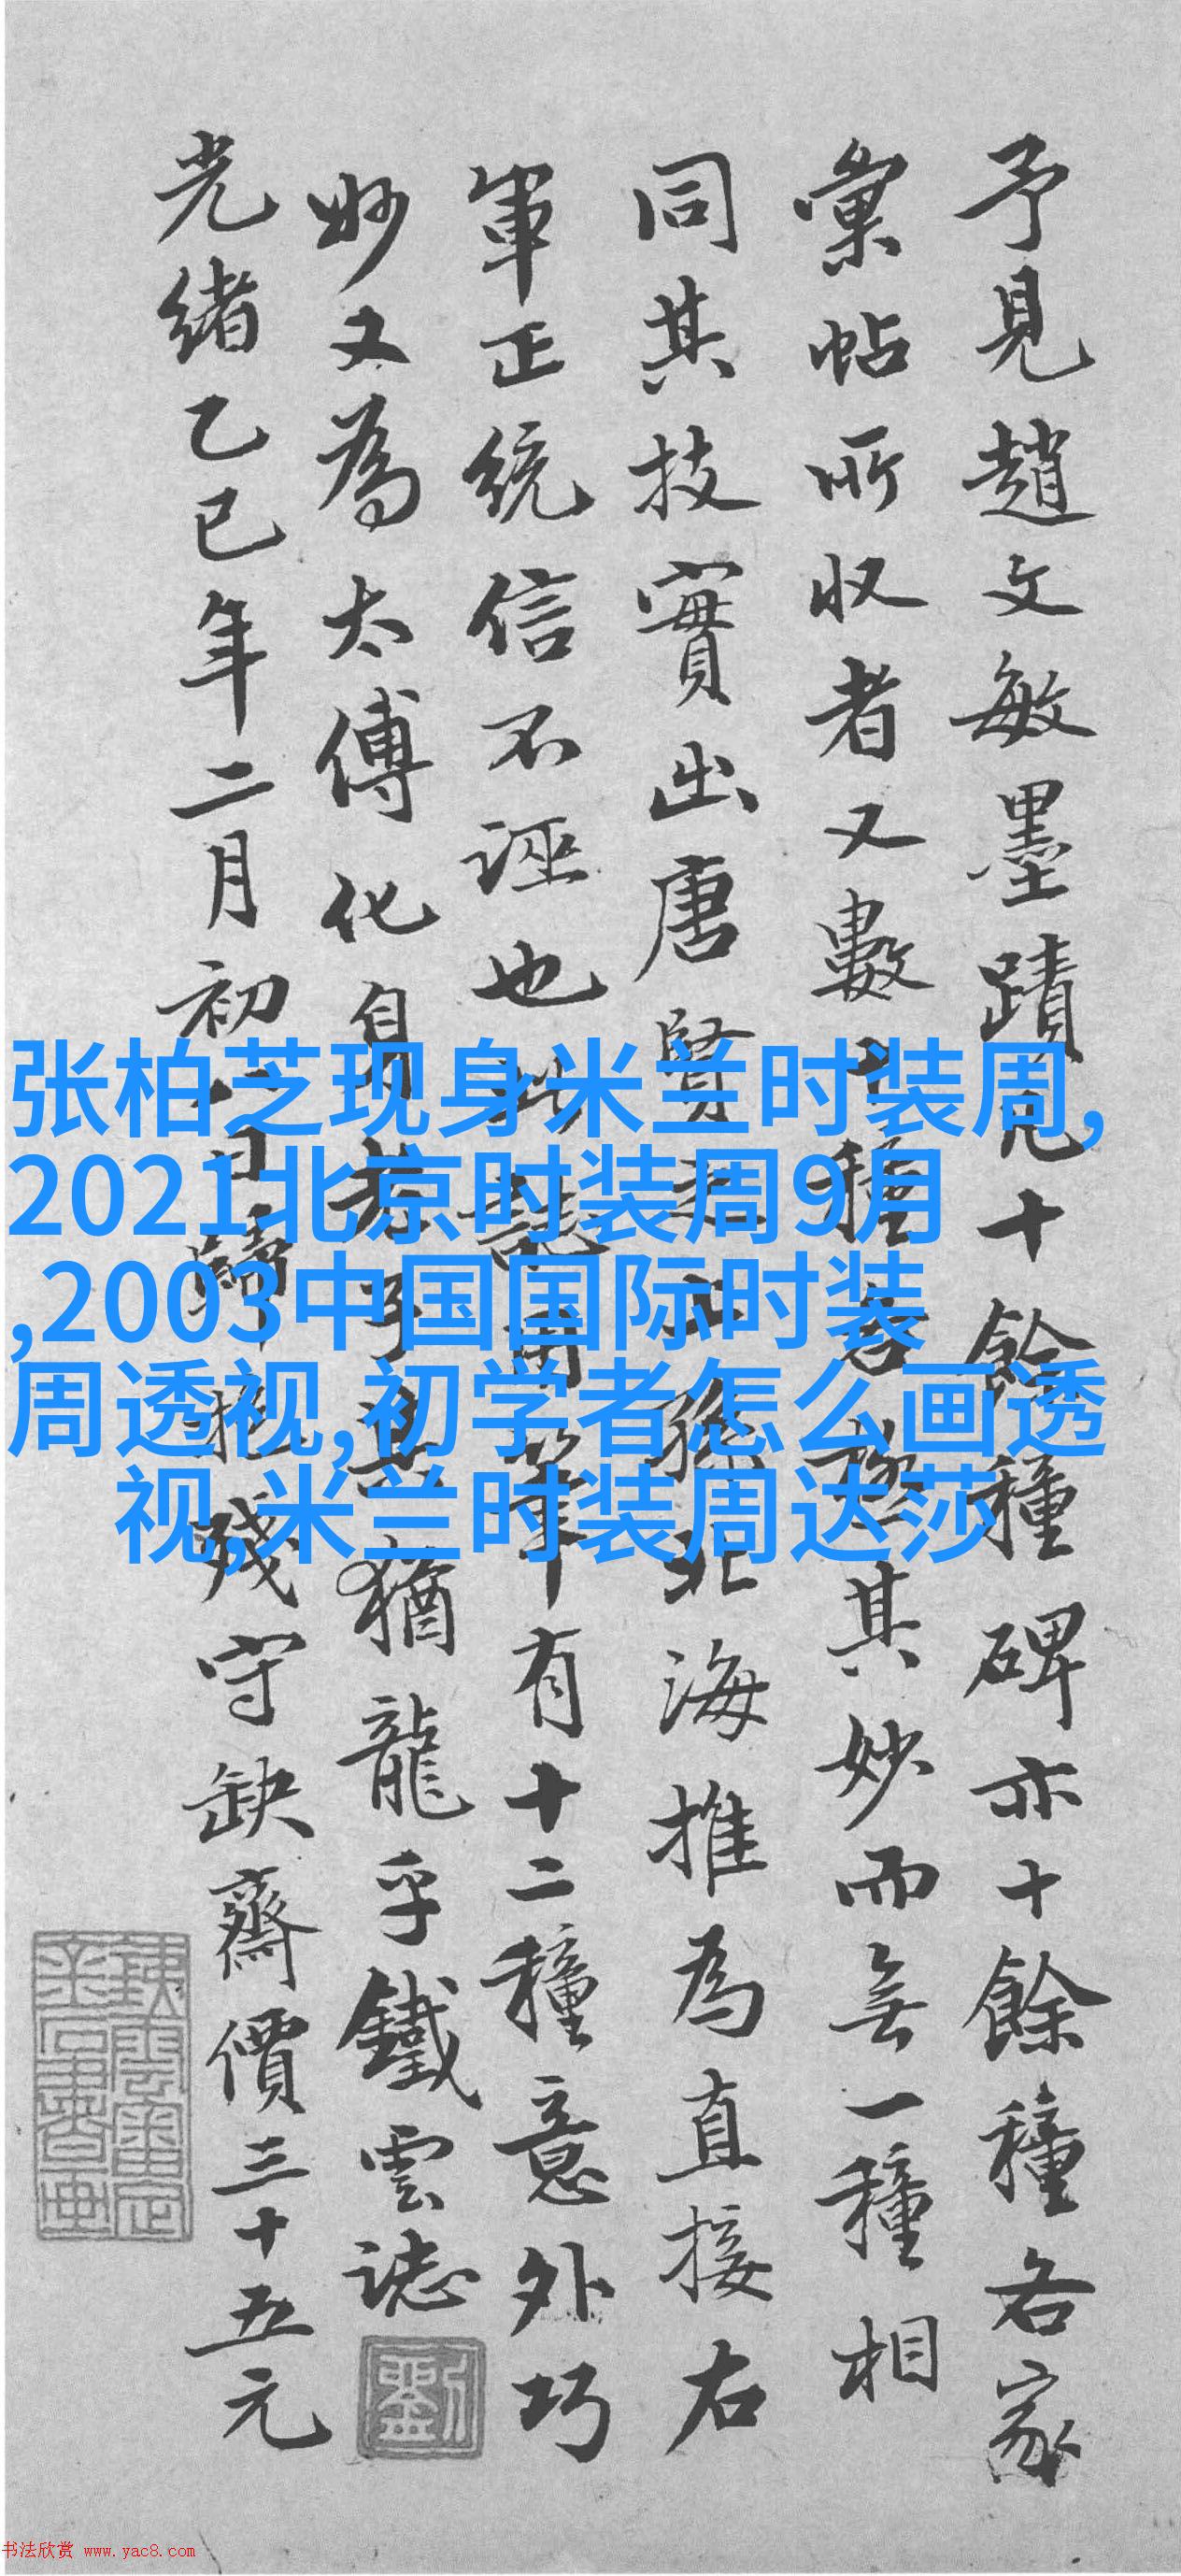 予見趙文敏墨蹟凡十餘種碑亦十餘種各家
彙帖所収者又數十種各極其妙而無一種相
同其技實出唐賢 孫北海推為直接右
軍正統信不誣也此誌用筆有十二種意外巧
妙又為太傅化身者 其猶龍乎鐵雲誌
光緒乙巳年二月初一日歸抱殘守缺齋價三十五元
张柏芝现身米兰时装周,
2021北京时装周9月
,2003中国国际时装
周透视,初学者怎么画透
视,米兰时装周达莎
书法欣赏 www.yac8.com